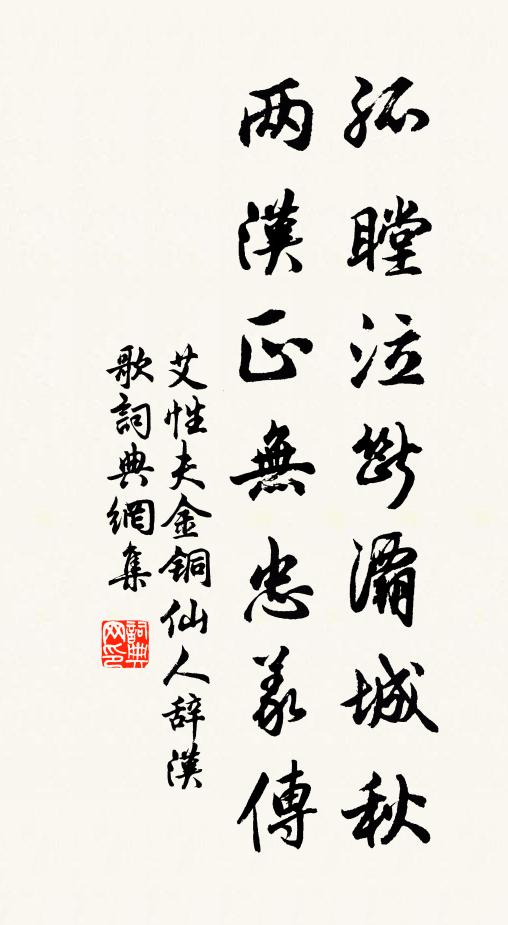 孤瞠泣断灞城秋
两漢正無忠義傳
艾性夫金铜仙人辞漢
歌詞典網集
詞典网印